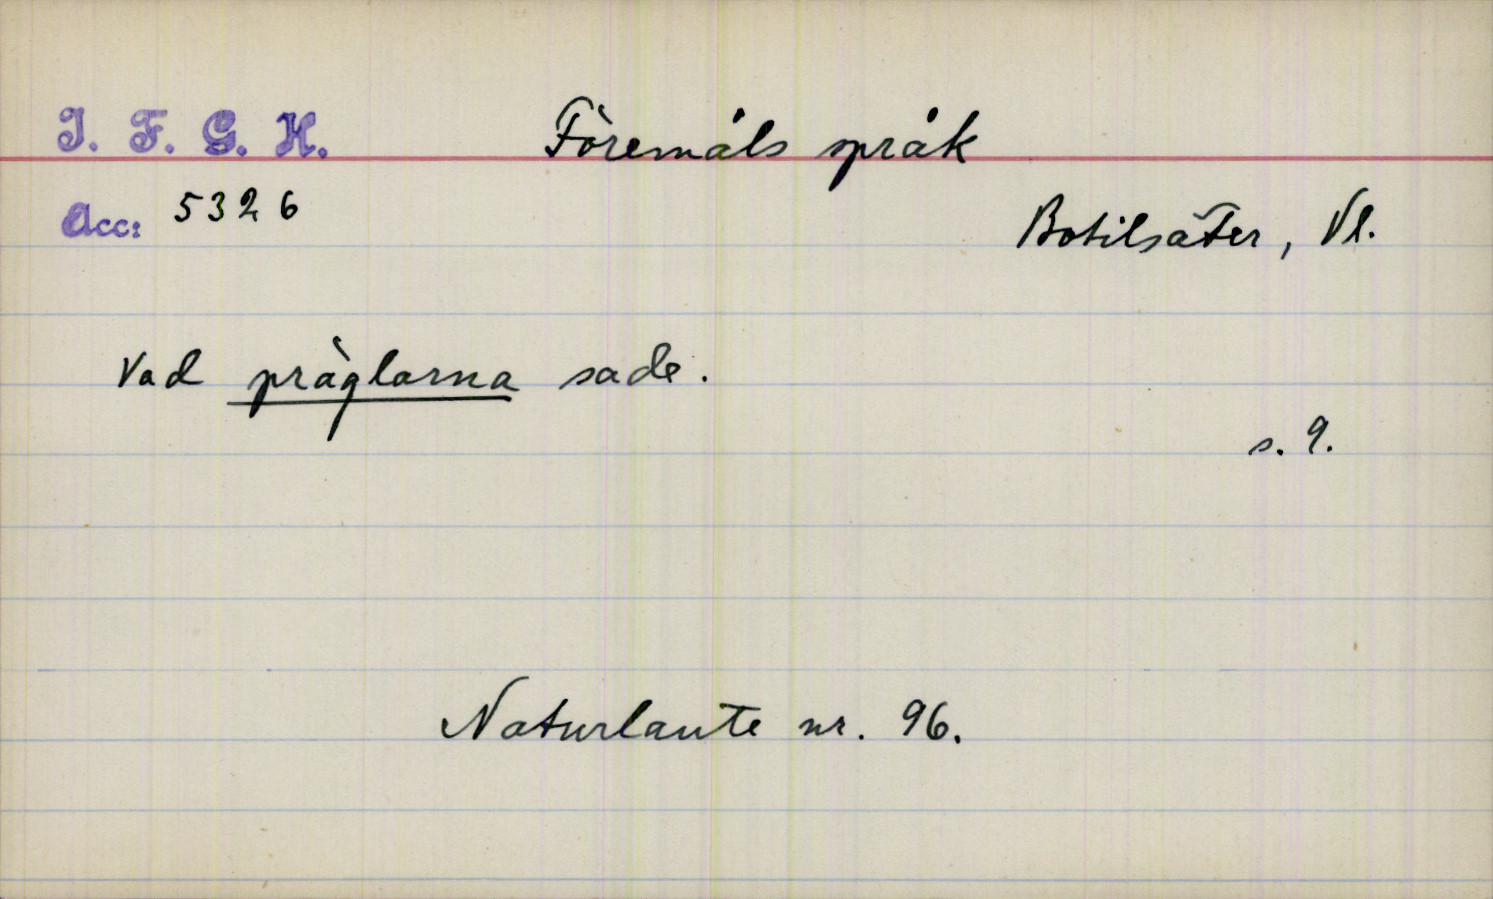 I. F. G. H. Föremåls språk
Acc: 5326
Botilsäter, Vl.
Vad präglarna sade.
s. 9.
Naturlaute nr. 96.